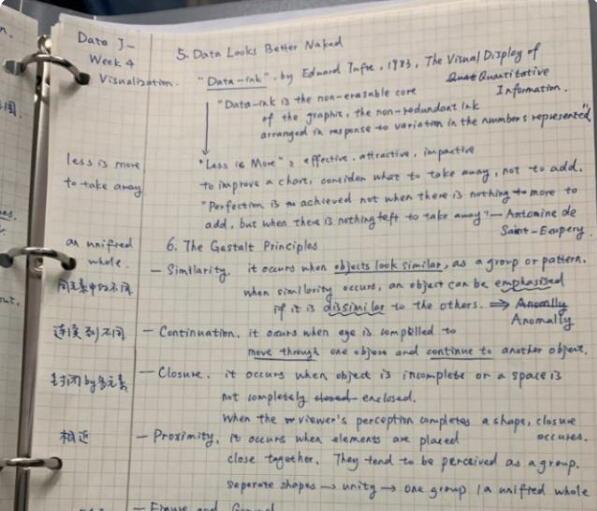 Data J-
Week 4
Visualization.
5. Data Looks Better Naked
"Data-ink". by Edward Tufte, 1983, The Visual Display of
Quantitative
Information.
"Data-ink is the non-erasable core
of the graphic, the non-redundant ink
arranged in response to variation in the numbers represented"
less is more
to take away
"Less is More": effective, attractive, impactive
to improve a chart, consider what to take away, not to add.
"Perfection is achieved not when there is nothing more to
add, but when there is nothing left to take away" — Antoine de
Saint-Exupery.
an unified
whole.
6. The Gestalt Principles
— Similarity. it occurs when objects look similar, as a group or pattern.
when similarity occurs, an object can be emphasised
if it is dissimilar to the others. ⇒ Anomally
Anomally
连续到不同
— Continuation. it occurs when eye is compelled to
move through one object and continue to another object.
封闭 by 多元素
— Closure. it occurs when object is incomplete or a space is
not completely closed enclosed.
When the viewer's perception completes a shape, closure
occures.
相近
— Proximity. it occurs when elements are placed
close together. They tend to be perceived as a group.
seperate shapes → unity → one group / a unified whole
— Figure and Ground